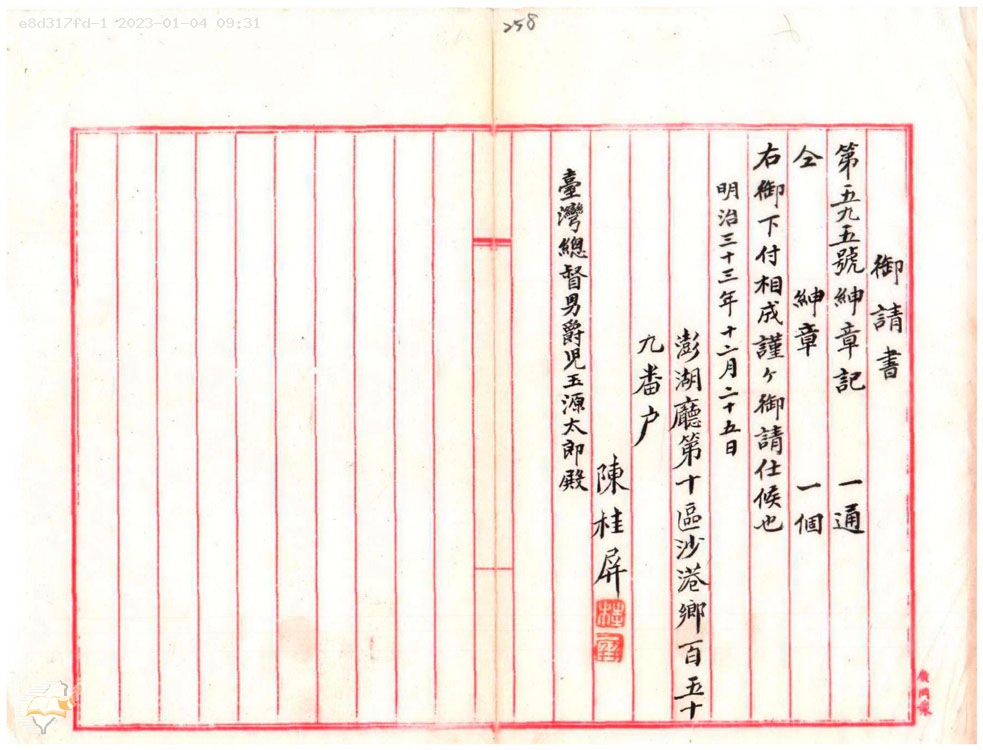 e8d317fd-1 2023-01-04 09:31
258
御請書
第五九五號紳章記 一通
仝 紳章 一個
右御下付相成謹ヶ御請仕候也
明治三十三年十二月二十五日
澎湖廳第十區沙港鄉百五十
九番户
陳桂屏
臺灣總督男爵児玉源太郎殿